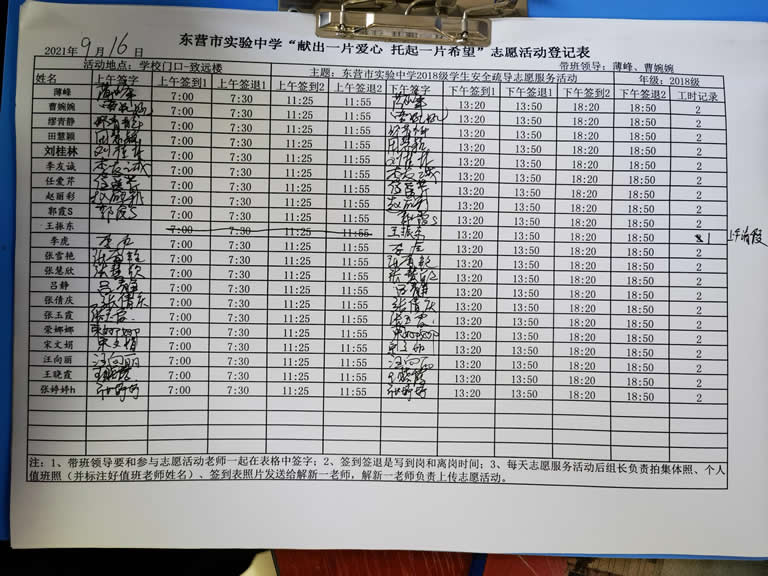 东营市实验中学“献出一片爱心 托起一片希望”志愿活动登记表
2021年9月16日
活动地点：学校门口-致远楼 主题：东营市实验中学2018级学生安全疏导志愿服务活动 带班领导：薄峰、曹婉婉 年级：2018级
姓名 上午签字 上午签到1 上午签退1 上午签到2 上午签退2 下午签字 下午签到1 下午签退1 下午签到2 下午签退2 工时记录
薄峰 7:00 7:30 11:25 11:55 13:20 13:50 18:20 18:50 2
曹婉婉 7:00 7:30 11:25 11:55 13:20 13:50 18:20 18:50 2
缪青静 7:00 7:30 11:25 11:55 13:20 13:50 18:20 18:50 2
田慧颖 7:00 7:30 11:25 11:55 13:20 13:50 18:20 18:50 2
刘桂林 刘桂林 7:00 7:30 11:25 11:55 刘桂林 13:20 13:50 18:20 18:50 2
李友诚 李友诚 7:00 7:30 11:25 11:55 李友诚 13:20 13:50 18:20 18:50 2
任爱芹 任爱芹 7:00 7:30 11:25 11:55 任爱芹 13:20 13:50 18:20 18:50 2
赵丽彩 赵丽彩 7:00 7:30 11:25 11:55 赵丽彩 13:20 13:50 18:20 18:50 2
郭霞S 郭霞S 7:00 7:30 11:25 11:55 郭霞S 13:20 13:50 18:20 18:50 2
王振东 7:00 7:30 11:25 11:55 王振东 13:20 13:50 18:20 18:50 1 上午请假
李虎 李虎 7:00 7:30 11:25 11:55 李虎 13:20 13:50 18:20 18:50 2
张雪艳 张雪艳 7:00 7:30 11:25 11:55 张雪艳 13:20 13:50 18:20 18:50 2
张慧欣 张慧欣 7:00 7:30 11:25 11:55 张慧欣 13:20 13:50 18:20 18:50 2
吕静 吕静 7:00 7:30 11:25 11:55 吕静 13:20 13:50 18:20 18:50 2
张倩庆 张倩庆 7:00 7:30 11:25 11:55 张倩庆 13:20 13:50 18:20 18:50 2
张玉霞 张玉霞 7:00 7:30 11:25 11:55 张玉霞 13:20 13:50 18:20 18:50 2
荣娜娜 荣娜娜 7:00 7:30 11:25 11:55 荣娜娜 13:20 13:50 18:20 18:50 2
宋文娟 宋文娟 7:00 7:30 11:25 11:55 宋文娟 13:20 13:50 18:20 18:50 2
汪向丽 汪向丽 7:00 7:30 11:25 11:55 汪向丽 13:20 13:50 18:20 18:50 2
王晓霞 王晓霞 7:00 7:30 11:25 11:55 王晓霞 13:20 13:50 18:20 18:50 2
张婷婷h 7:00 7:30 11:25 11:55 13:20 13:50 18:20 18:50 2
注：1、带班领导要和参与志愿活动老师一起在表格中签字；2、签到签退是写到岗和离岗时间；3、每天志愿服务活动后组长负责拍集体照、个人
值班照（并标注好值班老师姓名）、签到表照片发送给解新一老师，解新一老师负责上传志愿活动。